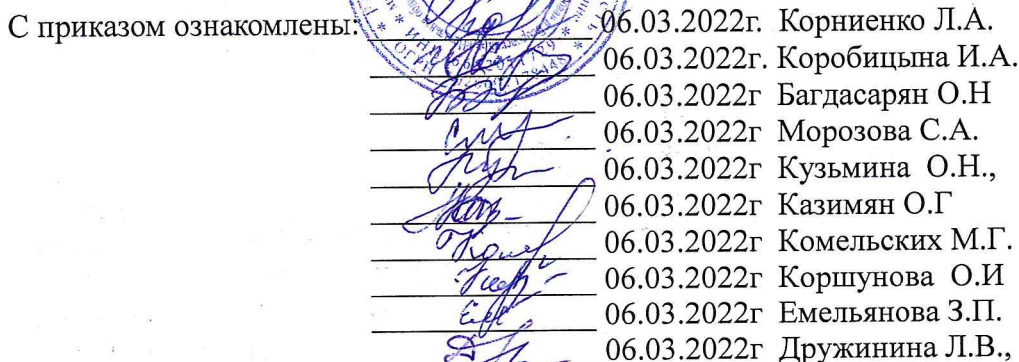 С приказом ознакомлены: 06.03.2022г. Корниенко Л.А.
06.03.2022г. Коробицына И.А.
06.03.2022г Багдасарян О.Н
06.03.2022г Морозова С.А.
06.03.2022г Кузьмина О.Н.,
06.03.2022г Казимян О.Г
06.03.2022г Комельских М.Г.
06.03.2022г Коршунова О.И
06.03.2022г Емельянова З.П.
06.03.2022г Дружинина Л.В.,